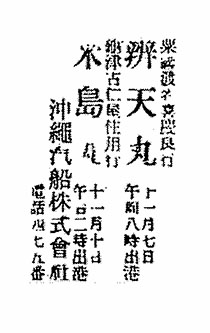 粟國渡名喜慶良行
辨天丸
十一月七日
午前八時出港
名瀬古仁屋住用行
米島丸
十一月十日
午后二時出港
沖繩汽船株式會社
電話四七五番